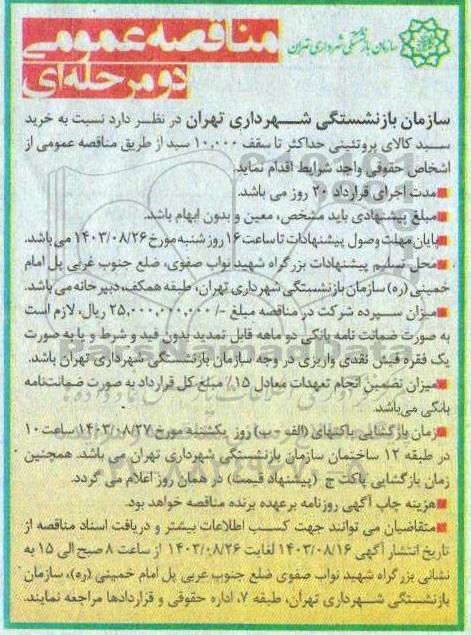 سازمان بازنشستگی شهرداری تهران
مناقصه عمومی
دو مرحله‌ای
سازمان بازنشستگی شهرداری تهران در نظر دارد نسبت به خرید
سبد کالای پروتئینی حداکثر تا سقف ۱۰,۰۰۰ سبد از طریق مناقصه عمومی از
اشخاص حقوقی واجد شرایط اقدام نماید.
■مدت اجرای قرارداد ۲۰ روز می باشد.
■مبلغ پیشنهادی باید مشخص، معین و بدون ابهام باشد.
■پایان مهلت وصول پیشنهادات تا ساعت ۱۶ روز شنبه مورخ ۱۴۰۳/۰۸/۲۶ می باشد.
■محل تسلیم پیشنهادات بزرگراه شهید نواب صفوی، ضلع جنوب غربی پل امام
خمینی (ره) سازمان بازنشستگی شهرداری تهران، طبقه همکف، دبیرخانه می باشد.
■میزان سپرده شرکت در مناقصه مبلغ -/۲۵,۰۰۰,۰۰۰,۰۰۰ ریال، لازم است
به صورت ضمانت نامه بانکی دو ماهه قابل تمدید بدون قید و شرط و یا به صورت
یک فقره فیش نقدی واریزی در وجه سازمان بازنشستگی شهرداری تهران باشد.
■میزان تضمین انجام تعهدات معادل ۱۵٪ مبلغ کل قرارداد به صورت ضمانت‌نامه
بانکی می‌باشد.
■زمان بازگشایی پاکتهای (الف - ب) روز یکشنبه مورخ ۱۴۰۳/۰۸/۲۷ ساعت ۱۰
در طبقه ۱۲ ساختمان سازمان بازنشستگی شهرداری تهران می باشد. همچنین
زمان بازگشایی پاکت ج (پیشنهاد قیمت) در همان روز اعلام می گردد.
■هزینه چاپ آگهی روزنامه بر عهده برنده مناقصه خواهد بود.
■متقاضیان می توانند جهت کسب اطلاعات بیشتر و دریافت اسناد مناقصه از
تاریخ انتشار آگهی ۱۴۰۳/۰۸/۱۶ لغایت ۱۴۰۳/۰۸/۲۶ از ساعت ۸ صبح الی ۱۵ به
نشانی بزرگراه شهید نواب صفوی ضلع جنوب غربی پل امام خمینی (ره)، سازمان
بازنشستگی شهرداری تهران، طبقه ۷، اداره حقوقی و قراردادها مراجعه نمایند.